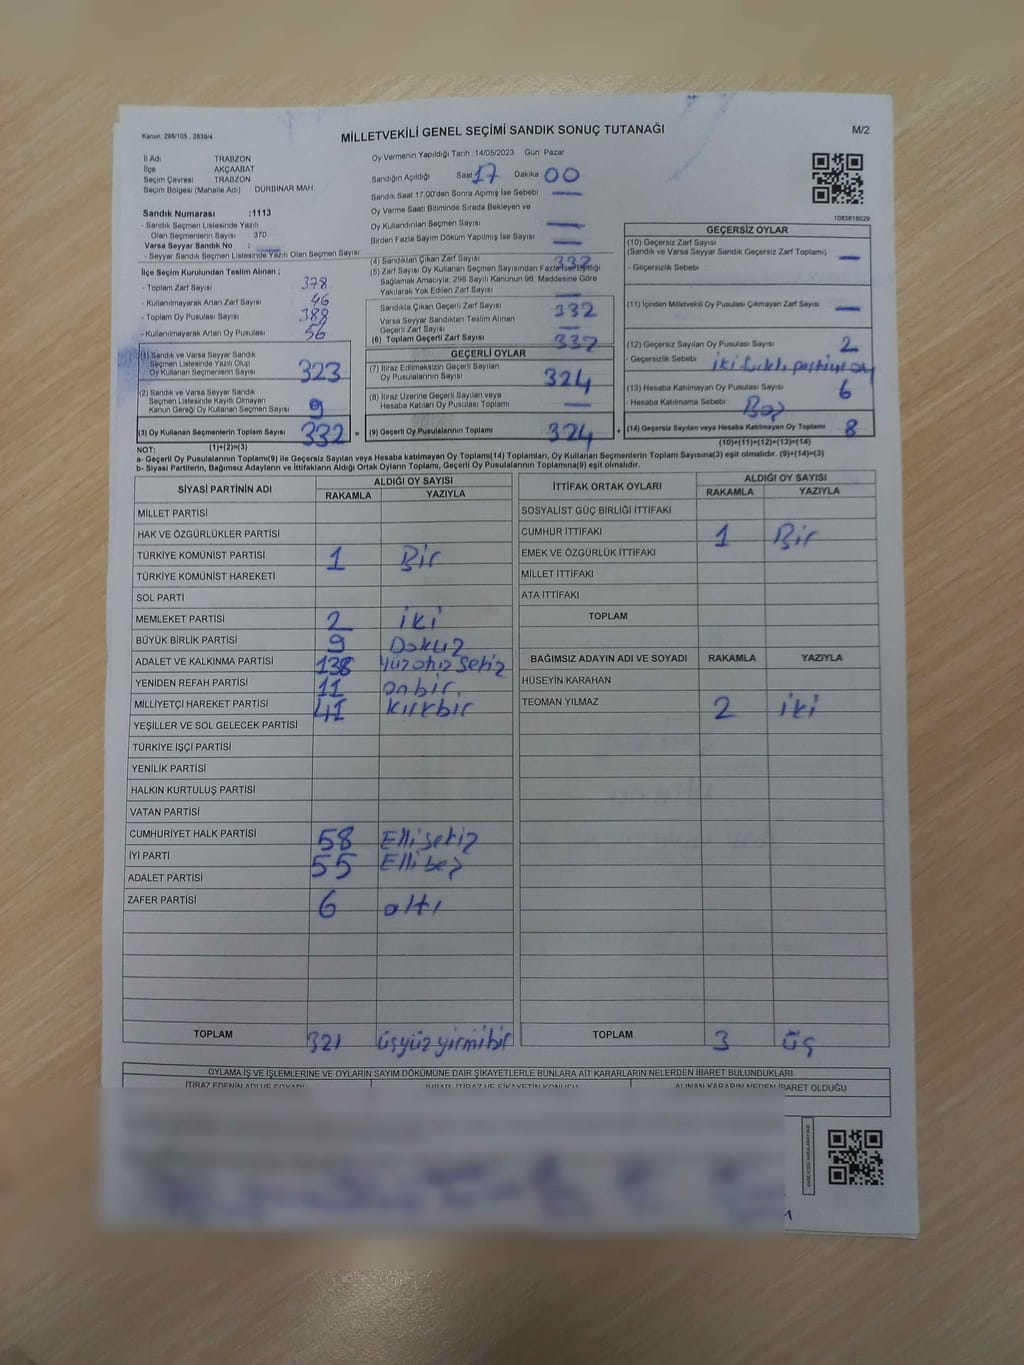 Kanun: 298/105 , 2839/4
MİLLETVEKİLİ GENEL SEÇİMİ SANDIK SONUÇ TUTANAĞI
M/2
İl Adı TRABZON
İlçe AKÇAABAT
Seçim Çevresi TRABZON
Seçim Bölgesi (Mahalle Adı) DÜRBİNAR MAH.
Oy Vermenin Yapıldığı Tarih :14/05/2023 Gün: Pazar
Sandığın Açıldığı Saat 17 Dakika 00
Sandık Saat 17.00'den Sonra Açılmış İse Sebebi —
Oy Verme Saati Bitiminde Sırada Bekleyen ve
Oy Kullandırılan Seçmen Sayısı —
Birden Fazla Sayım Döküm Yapılmış İse Sayısı —
1083818029
Sandık Numarası :1113
- Sandık Seçmen Listesinde Yazılı
Olan Seçmenlerin Sayısı 370
Varsa Seyyar Sandık No : —
- Seyyar Sandık Seçmen Listesinde Yazılı Olan Seçmen Sayısı
İlçe Seçim Kurulundan Teslim Alınan ;
- Toplam Zarf Sayısı 378
- Kullanılmayarak Artan Zarf Sayısı 46
- Toplam Oy Pusulası Sayısı 388
- Kullanılmayarak Artan Oy Pusulası 56
(1) Sandık ve Varsa Seyyar Sandık
Seçmen Listesinde Yazılı Olup
Oy Kullanan Seçmenlerin Sayısı 323
(2) Sandık ve Varsa Seyyar Sandık
Seçmen Listesinde Kayıtlı Olmayan
Kanun Gereği Oy Kullanan Seçmen Sayısı 9
(3) Oy Kullanan Seçmenlerin Toplam Sayısı 332 =
(1)+(2)=(3)
(4) Sandıktan Çıkan Zarf Sayısı 332
(5) Zarf Sayısı Oy Kullanan Seçmen Sayısından Fazla İse Eşitliği
Sağlamak Amacıyla, 298 Sayılı Kanunun 98. Maddesine Göre
Yakılarak Yok Edilen Zarf Sayısı —
Sandıkta Çıkan Geçerli Zarf Sayısı 332
Varsa Seyyar Sandıktan Teslim Alınan
Geçerli Zarf Sayısı —
(6) Toplam Geçerli Zarf Sayısı 332
GEÇERLİ OYLAR
(7) İtiraz Edilmeksizin Geçerli Sayılan
Oy Pusulalarının Sayısı 324
(8) İtiraz Üzerine Geçerli Sayılan veya
Hesaba Katılan Oy Pusulası Toplamı —
(9) Geçerli Oy Pusulalarının Toplamı 324 +
GEÇERSİZ OYLAR
(10) Geçersiz Zarf Sayısı
(Sandık ve Varsa Seyyar Sandık Geçersiz Zarf Toplamı) —
- Geçersizlik Sebebi :
(11) İçinden Milletvekili Oy Pusulası Çıkmayan Zarf Sayısı —
(12) Geçersiz Sayılan Oy Pusulası Sayısı 2
- Geçersizlik Sebebi : iki farklı partiye oy
(13) Hesaba Katılmayan Oy Pusulası Sayısı 6
- Hesaba Katılmama Sebebi : Boş
(14) Geçersiz Sayılan veya Hesaba Katılmayan Oy Toplamı 8
(10)+(11)+(12)+(13)=(14)
NOT:
a- Geçerli Oy Pusulalarının Toplamı(9) ile Geçersiz Sayılan veya Hesaba katılmayan Oy Toplamı(14) Toplamları, Oy Kullanan Seçmenlerin Toplam Sayısına(3) eşit olmalıdır. (9)+(14)=(3)
b- Siyasi Partilerin, Bağımsız Adayların ve İttifakların Aldığı Ortak Oyların Toplamı, Geçerli Oy Pusulalarının Toplamına(9) eşit olmalıdır.
SİYASİ PARTİNİN ADI ALDIĞI OY SAYISI
RAKAMLA YAZIYLA
MİLLET PARTİSİ
HAK VE ÖZGÜRLÜKLER PARTİSİ
TÜRKİYE KOMÜNİST PARTİSİ 1 Bir
TÜRKİYE KOMÜNİST HAREKETİ
SOL PARTİ
MEMLEKET PARTİSİ 2 iki
BÜYÜK BİRLİK PARTİSİ 9 Dokuz
ADALET VE KALKINMA PARTİSİ 138 Yüzotuzsekiz
YENİDEN REFAH PARTİSİ 11 onbir.
MİLLİYETÇİ HAREKET PARTİSİ 41 Kırkbir
YEŞİLLER VE SOL GELECEK PARTİSİ
TÜRKİYE İŞÇİ PARTİSİ
YENİLİK PARTİSİ
HALKIN KURTULUŞ PARTİSİ
VATAN PARTİSİ
CUMHURİYET HALK PARTİSİ 58 Ellisekiz
İYİ PARTİ 55 Ellibeş
ADALET PARTİSİ
ZAFER PARTİSİ 6 altı
TOPLAM 321 üçyüzyirmibir
İTTİFAK ORTAK OYLARI ALDIĞI OY SAYISI
RAKAMLA YAZIYLA
SOSYALİST GÜÇ BİRLİĞİ İTTİFAKI
CUMHUR İTTİFAKI 1 Bir
EMEK VE ÖZGÜRLÜK İTTİFAKI
MİLLET İTTİFAKI
ATA İTTİFAKI
TOPLAM
BAĞIMSIZ ADAYIN ADI VE SOYADI RAKAMLA YAZIYLA
HÜSEYİN KARAHAN
TEOMAN YILMAZ 2 iki
TOPLAM 3 üç
OYLAMA İŞ VE İŞLEMLERİNE VE OYLARIN SAYIM DÖKÜMÜNE DAİR ŞİKAYETLERLE BUNLARA AİT KARARLARIN NELERDEN İBARET BULUNDUKLARI
İTİRAZ EDENİN ADI VE SOYADI İHBAR, İTİRAZ VE ŞİKAYETİN KONUSU ALINAN KARARIN NEDEN İBARET OLDUĞU